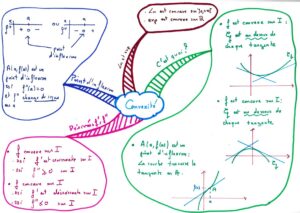 ou
f''
+ 0 -
f''
- 0 +
point
d'inflexion
A(a, f(a)) est un
point d'inflexion
ssi f''(a) = 0
et f'' change de signe
en a
Point d'inflexion
Convexité
C'est quoi ?
ln est concave sur
exp est convexe sur ℝ
• f est convexe sur I :
Cf est au dessus de
chaque tangente
• f est concave sur I :
Cf est en dessous
de chaque tangente
Cf
• A(a, f(a)) est un
point d'inflexion :
la courbe traverse la
tangente en A
f(a)
A
a
Cf
• f convexe sur I
ssi f' croissante sur I
ssi f'' ≥ 0 sur I
• f concave sur I
ssi f' décroissante sur I
ssi f'' ≤ 0 sur I